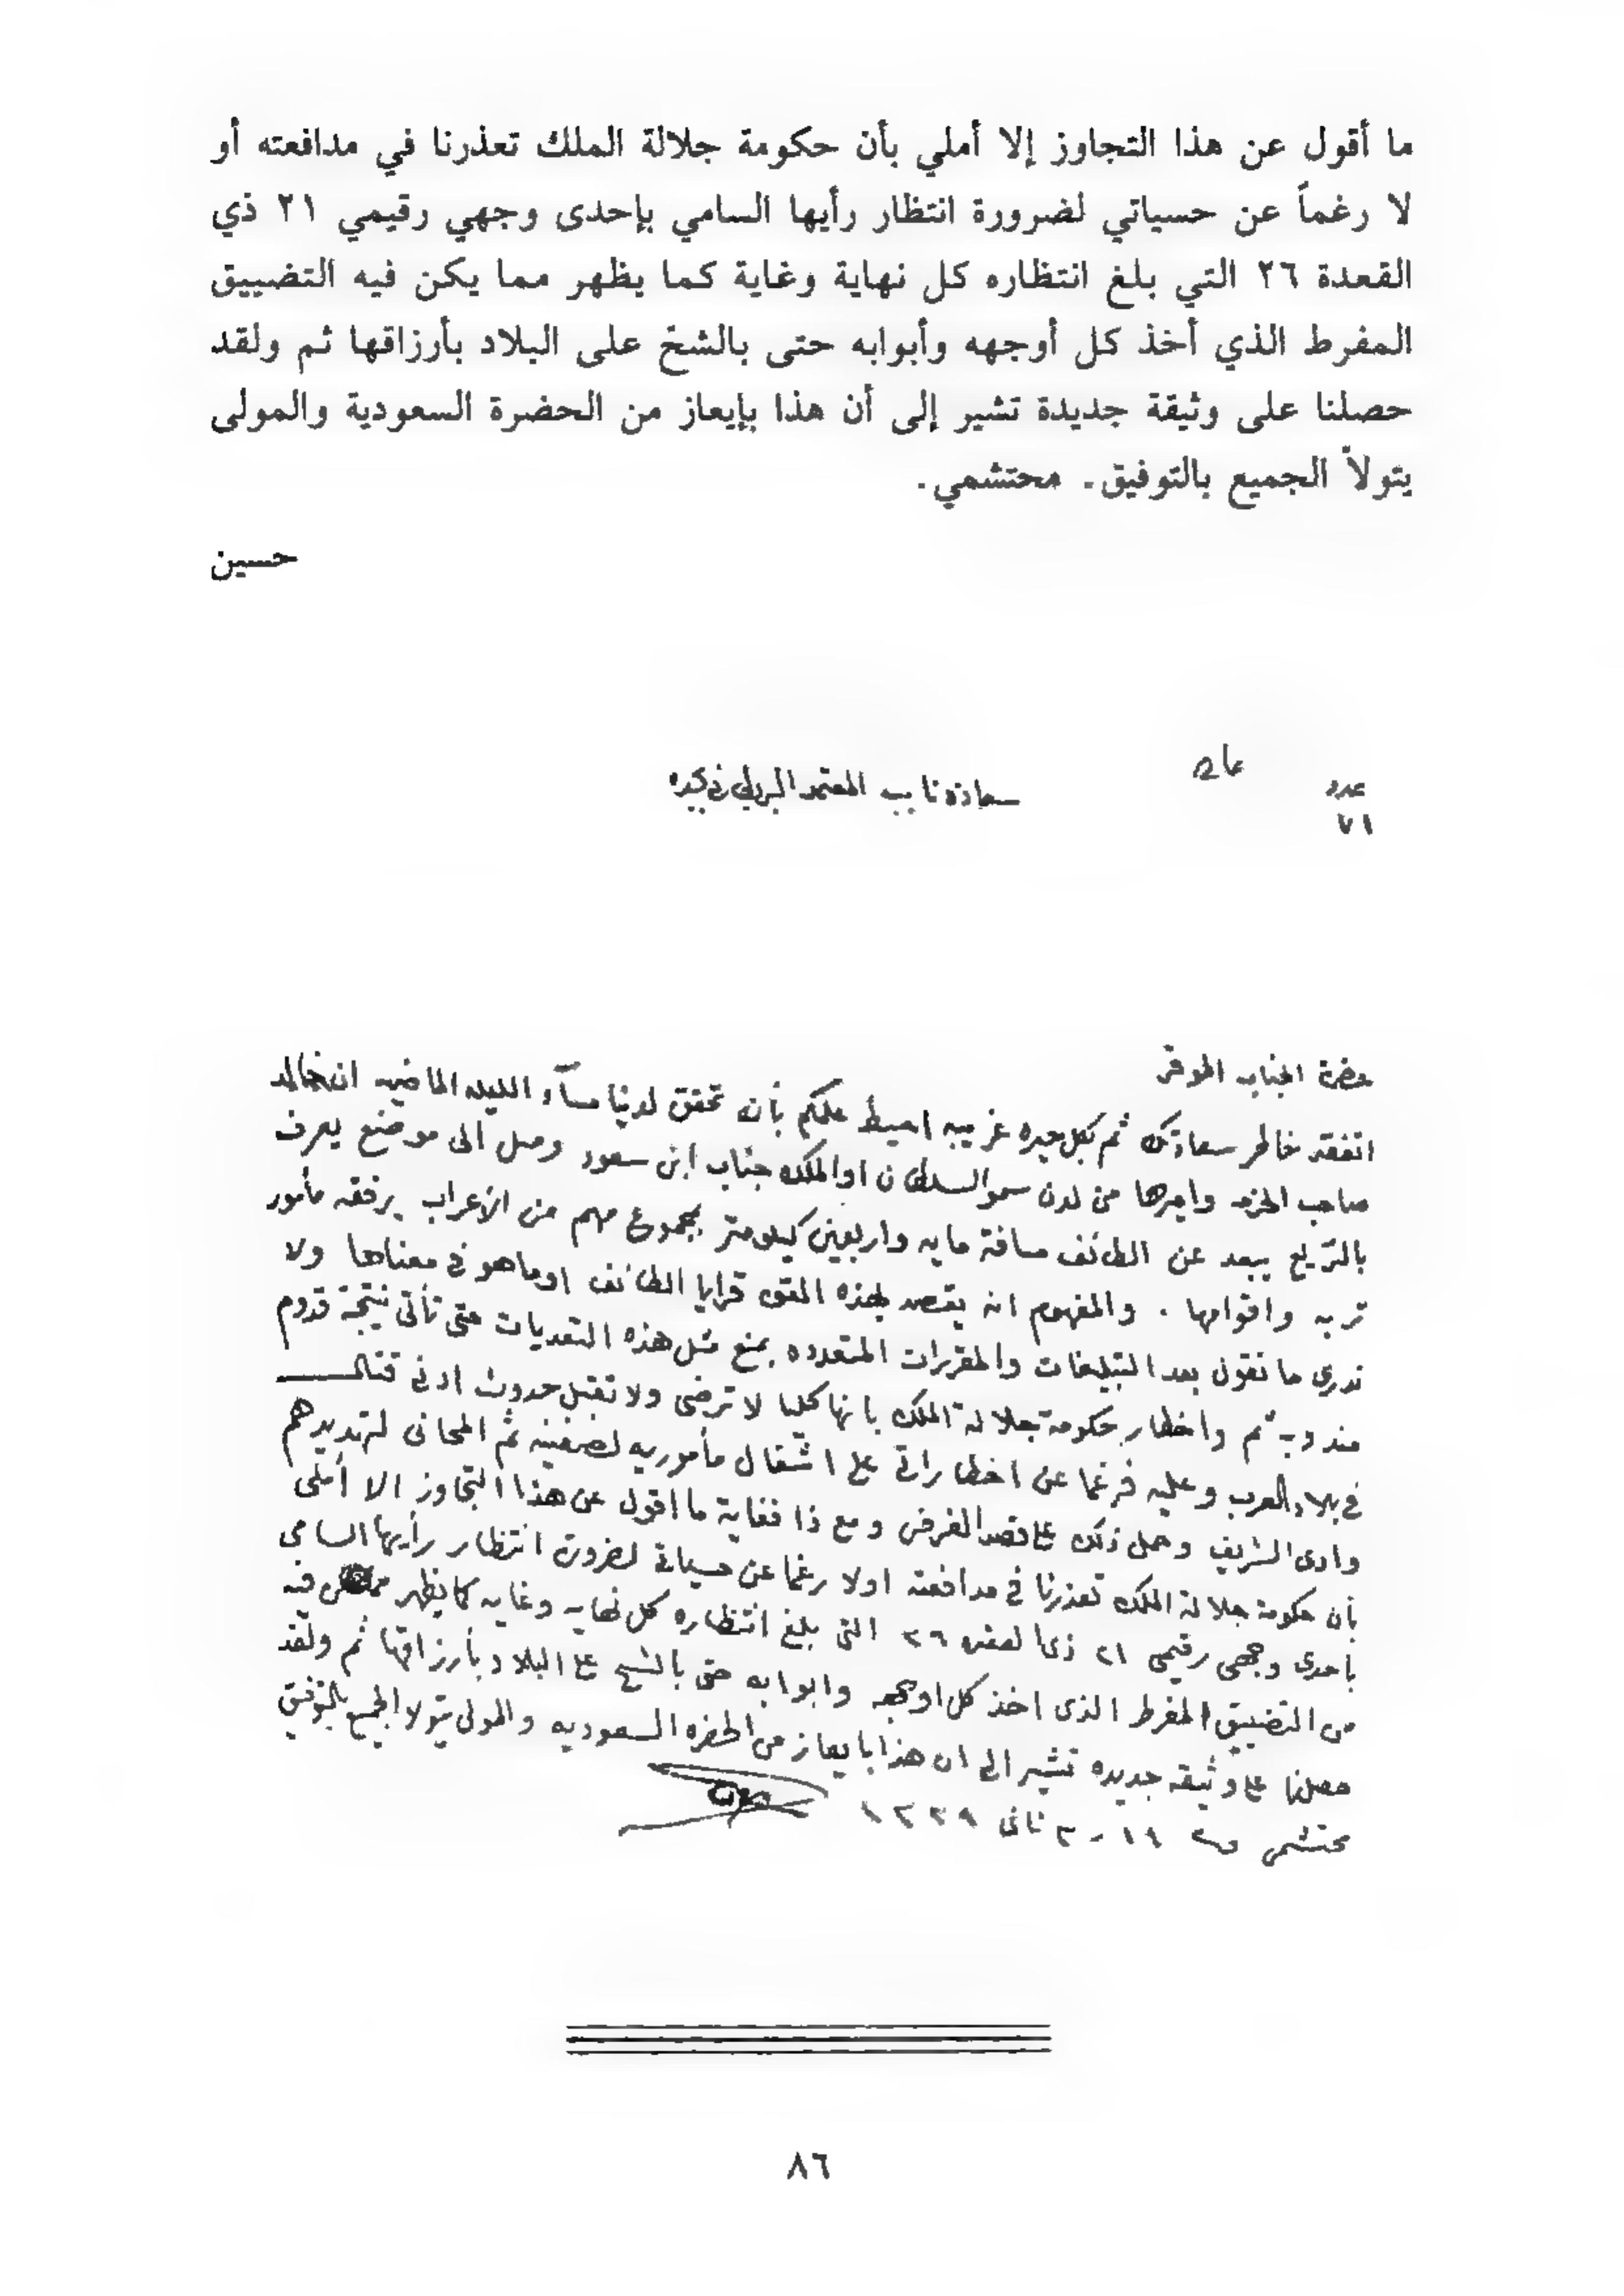 ما أقول عن هذا التجاوز إلا أملي بأن حكومة جلالة الملك تعذرنا في مدافعته أو
لا رغماً عن حسياتي لضرورة انتظار رأيها السامي بإحدى وجهي رقيمي ٢١ ذي
القعدة ٢٦ التي بلغ انتظاره كل نهاية وغاية كما يظهر مما يكن فيه التضييق
المفرط الذي أخذ كل أوجهه وأبوابه حتى بالشخ على البلاد بأرزاقها ثم ولقد
حصلنا على وثيقة جديدة تشير إلى أن هذا بإيعاز من الحضرة السعودية والمولى
يتولاً الجميع بالتوفيق. محتشمي.
حسين
سعادة نايب المعتمد البريطاني بجده
عدد
حضرة الجناب الموقر
اتفقته خاطر سعادتك ثم بكل حيره غريبه احيط علمكم بأن تحقق لدينا مساء الليله الماضيه ان خالد
صاحب الخرمه واميرها من لدن سمو السلطان او الملك جناب ابن سعود وصل الى موضع يعرف
يبعد عن الطائف مسافة مايه واربعين كيلومتر بجموع مهم من الأعراب يرفقه مأمور
تربه واقوامها . والمفهوم انه يقصد بهذه القوه قرايا الطائف اوما هو في معناها ولا
ندري ما نقول بعد التبليغات والمقررات المتعدده بمنع مثل هذه التعديات حتى تأتي نتيجة قدوم
مندوبة ثم واخطار حكومة جلالة الملك بانها كليا لا ترضى ولا تقبل حدوث ادنى قتال
في بلاد العرب وعليه فرغما عن اخطاراتي على اشغال مأموريه لصفينه ثم المحاني لتهديدهم
وادى الشريف وحمل ذلك على قصد الغرض ومع ذا فغاية ما اقول عن هذا التجاوز الا أملى
بأن حكومة جلالة الملك تعذرنا في مدافعته اولا رغما عن حسياتي لضرورة انتظار رأيها السامى
بأحدى وجهى رقيمى ٢١ ذى القعده ٢٦ التى بلغ انتظاره كل نهايه وغايه كما يظهر فيه
من التضييق المفرط الذى اخذ كل اوجهه وابوابه حتى بالشح على البلاد بأرزاقها ثم ولقد
حصلنا على وثيقه جديده تشير الى ان هذا بايعاز من الحضره السعوديه والمولى يتولا الجميع بالتوفيق
محتشمى
٨٦